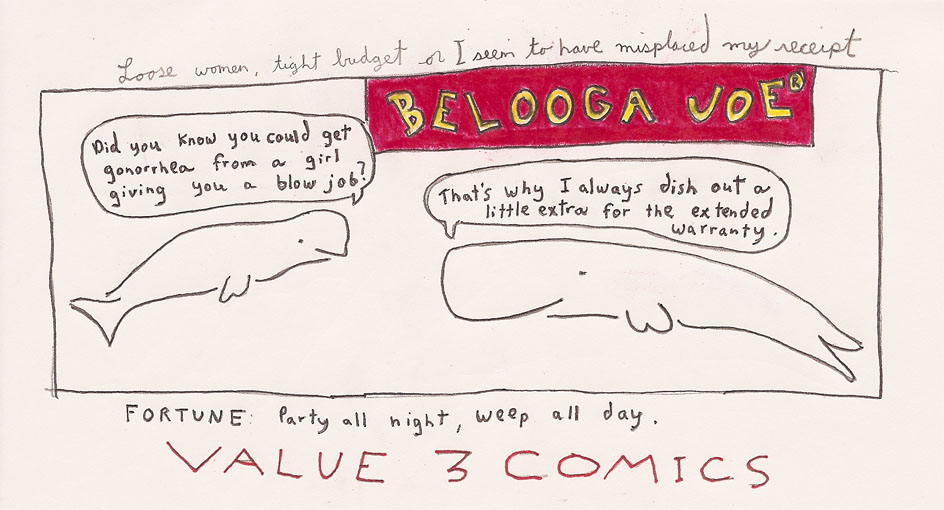 Loose women, tight budget or I seem to have misplaced my receipt
BELOOGA JOE®
Did you know you could get
gonorrhea from a girl
giving you a blow job?
That's why I always dish out a
little extra for the extended
warranty.
FORTUNE: Party all night, weep all day.
VALUE 3 COMICS